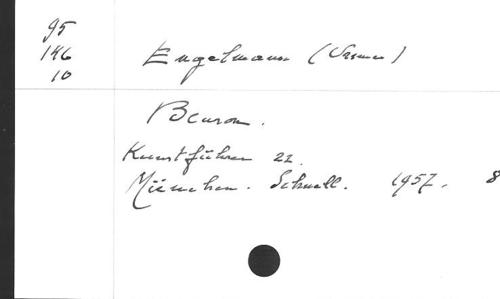 95
146
10
Engelmann (Ursmar)
Beuron.
Kunstführer 22.
München. Schnell. 1957. 8